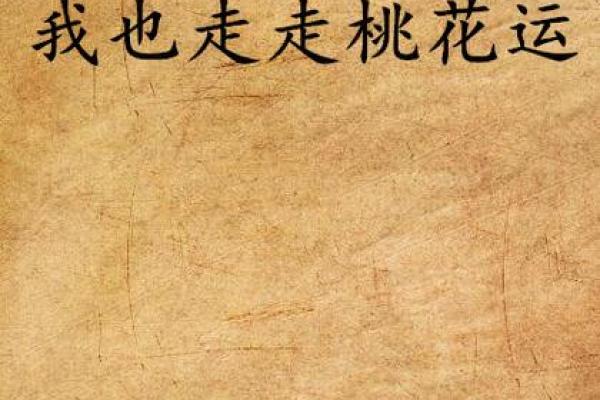 我也走走桃花运